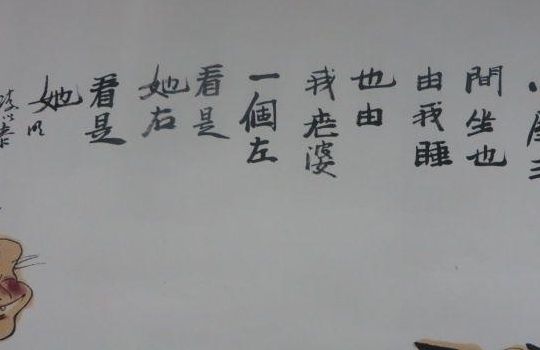 屋三
間坐也
由我睡
也由
我老婆
一個左
看是
她右
看是
她